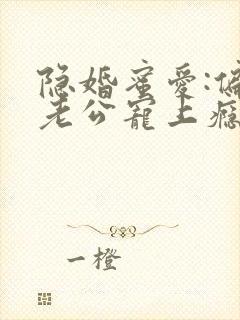 隐婚蜜爱:偏
老公宠上瘾
一橙